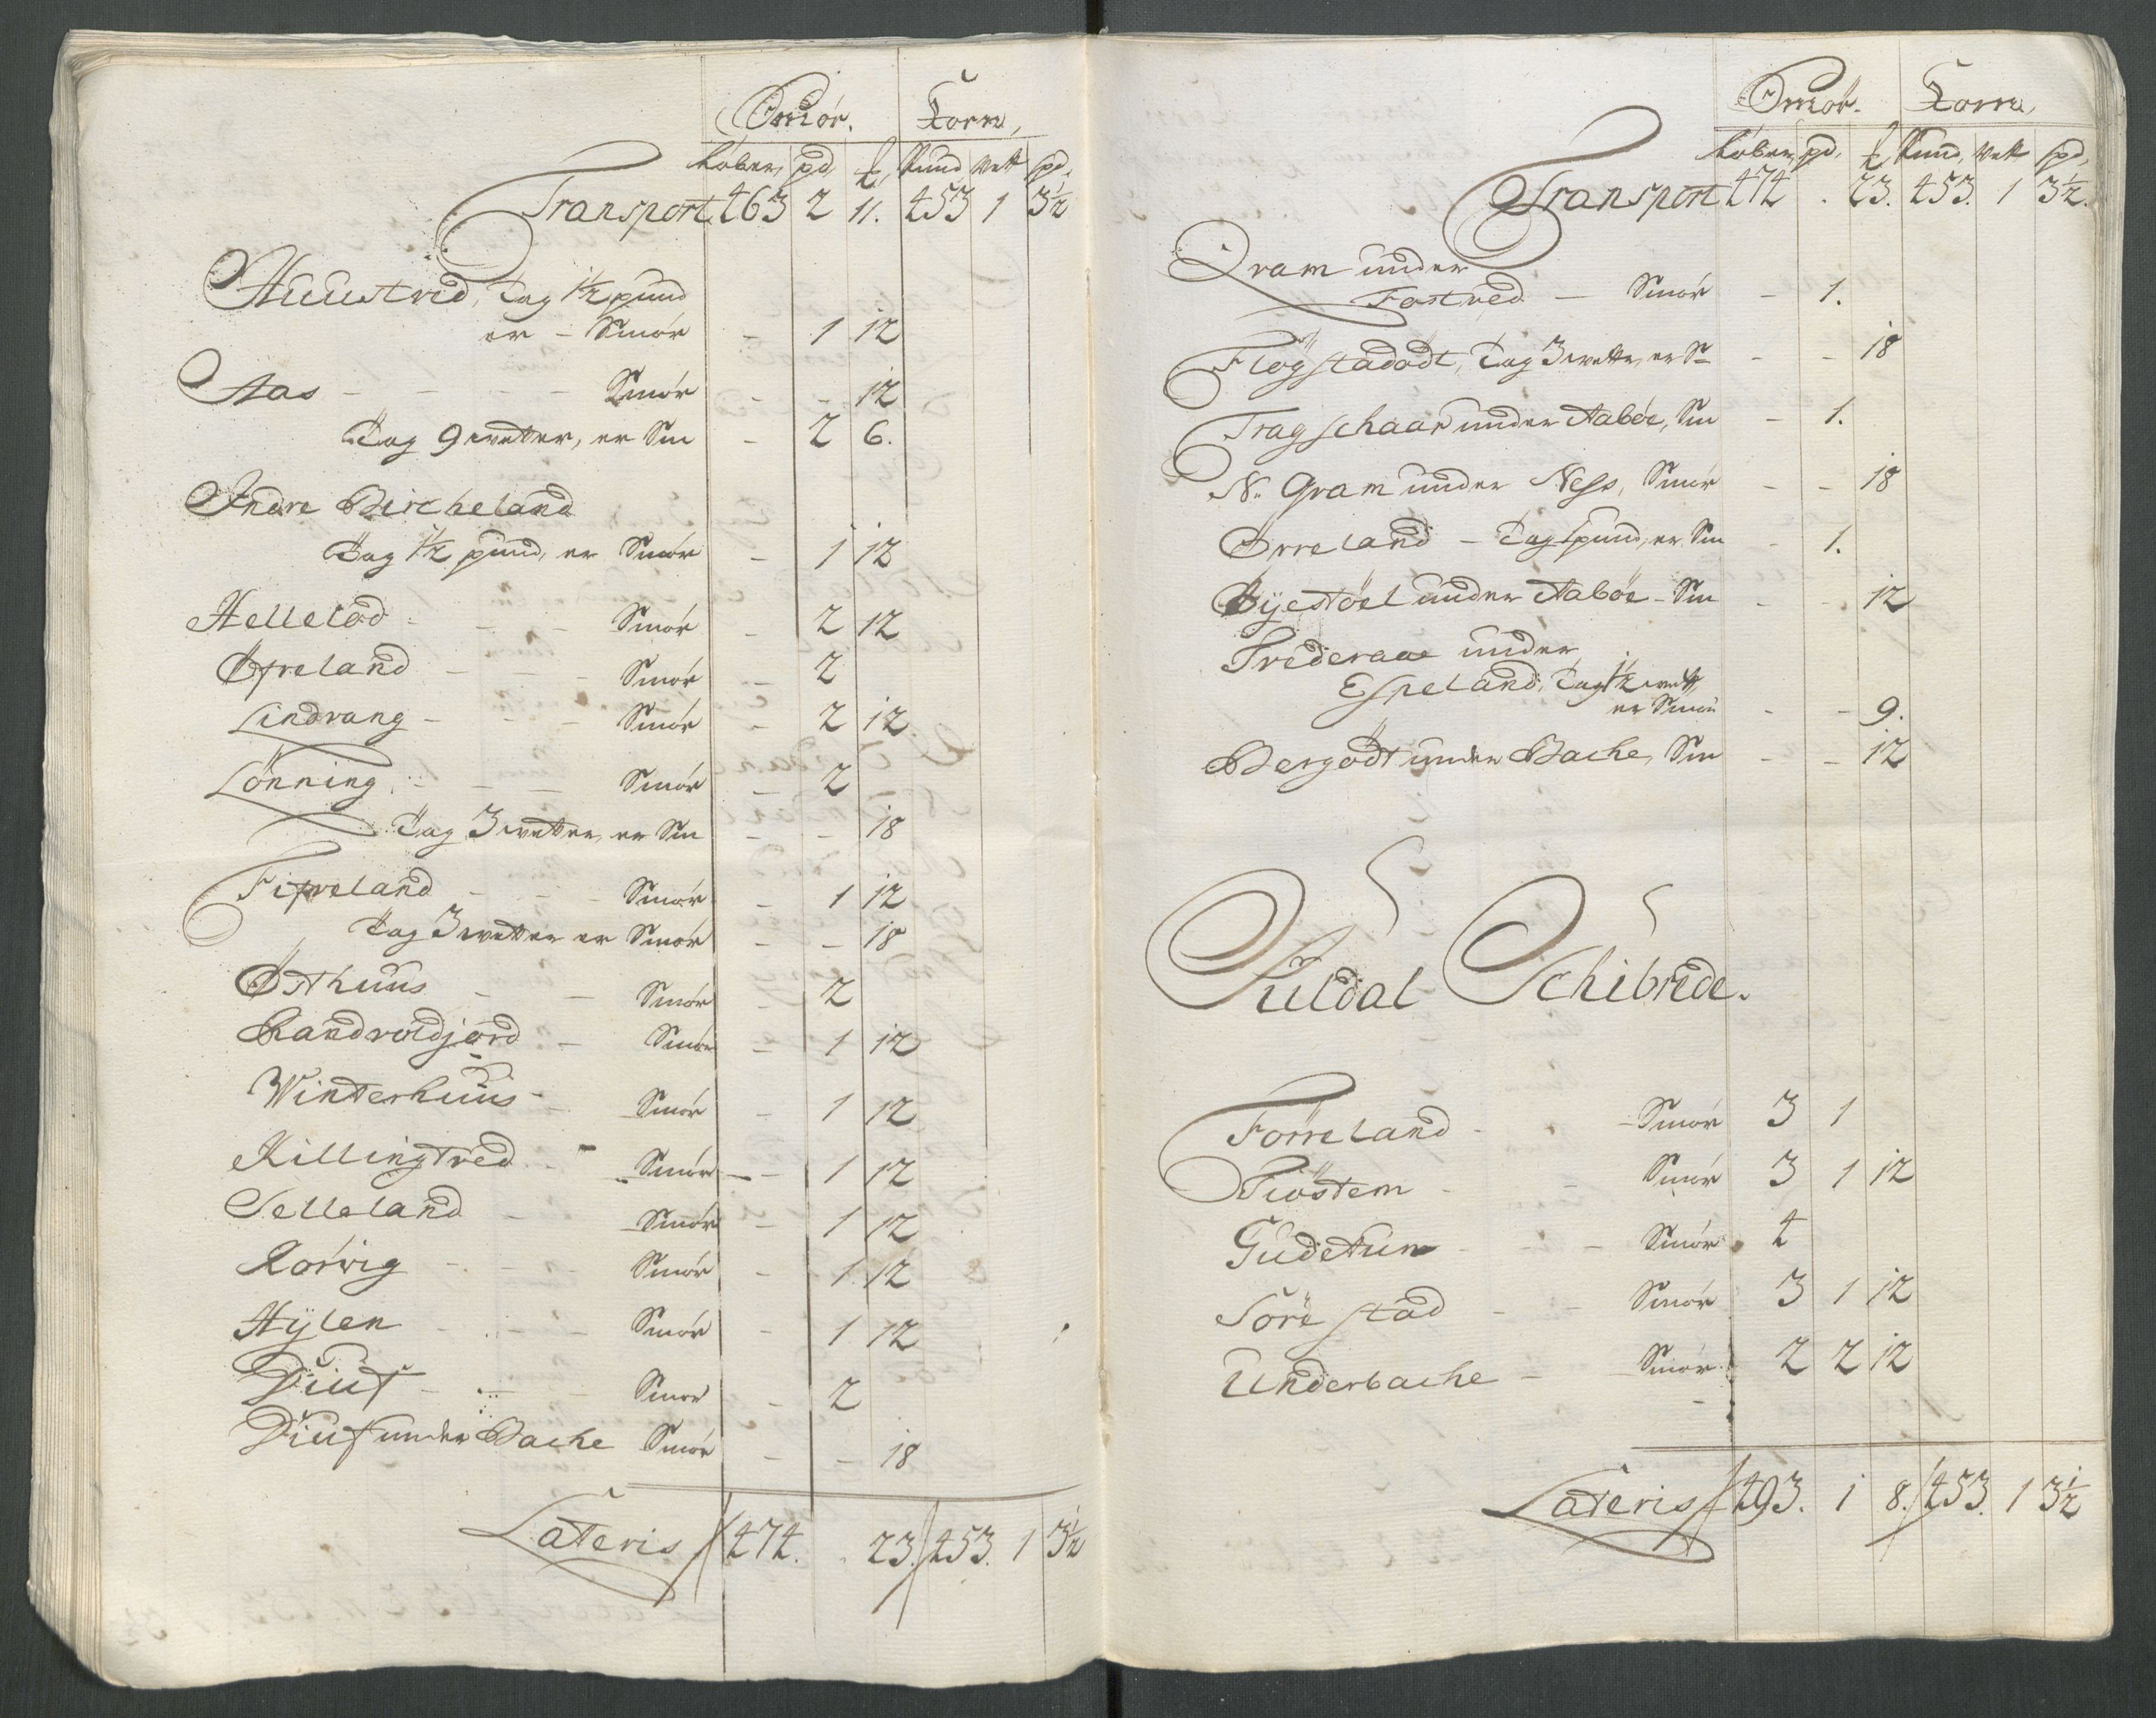 Smør. Korn,
Løber, pd, ℔, Pund Vett spd,
Transport 463 2 11. 453 1 3½
Huustvid, Tag 1½ pund
er - Smør - 1 12
Aas - - - - Smør - - 12
Tag 9 vetter, er Sm - 2 6.
Indre Bircheland
Tag 1½ pund, er Smør - 1 12
Hellelad - - Smør - 2 12
Øfreland - - - Smør - 2
Lindvang - - - Smør - 2 12
Lønning - - - Smør - 2
Tag 3 vetter, er Sm - - 18
Fifreland - - - Smør - 1 12
Tag 3 vetter er Smør - - 18
Østhuus - - Smør - 2
Randvoldjord - Smør - 1 12
Winterhuus - Smør - 1 12
Killingtved - Smør - 1 12
Selleland - Smør - 1 12
Rørvig - - - Smør - 1 12
Hÿlen - - - Smør - 1 12
Diuf - - - Smør - 2
Diuf under Bache Smør - - 18
Lateris 474. . 23. 453. 1 3½
Smør. Korn,
Løber, pd, ℔, Pund, Vett spd,
Transport 474 . 23. 453. 1 3½.
Qvam under
Fostved - Smør - 1.
Fløgstadødt, Tag 3 vetter, er S - - 18
Tragschaar under Aabøe, Sm - 1.
N. Qvam under Ness, Smør - - 18
Ørreland - Tag 1 pund, er Sm - 1.
Bÿestøel under Aabøe - Sm - - 12
Trederaae under
Espeland, Tag 1½ vett,
er Smør - - 9.
Bergødt under Bache, Sm - - 12
Suldal Schibrede.
Førreland - Smør 3 1
Fiøstem - - Smør 3 1 12
Gudetun - - - Smør 4
Sørestad - - Smør 3 1 12
Underbache - Smør 2 2 12
Lateris 493. 1 8. 453. 1 3½